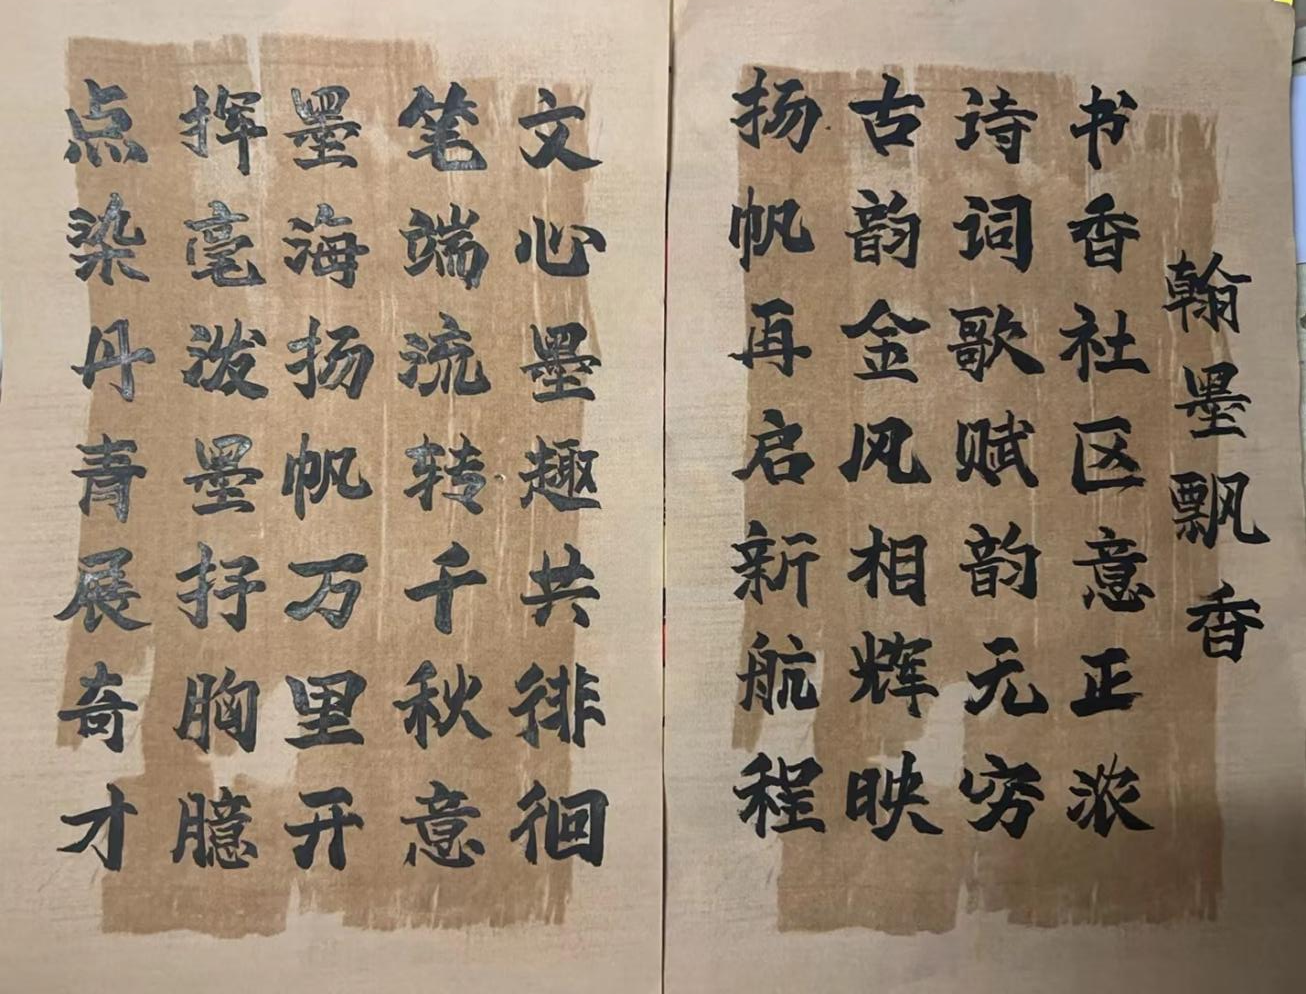 翰墨飘香
书香社区意正浓
诗词歌赋韵无穷
古韵金风相辉映
扬帆再启新航程
文心墨趣共徘徊
笔端流转千秋意
墨海扬帆万里开
挥毫泼墨抒胸臆
点染丹青展奇才